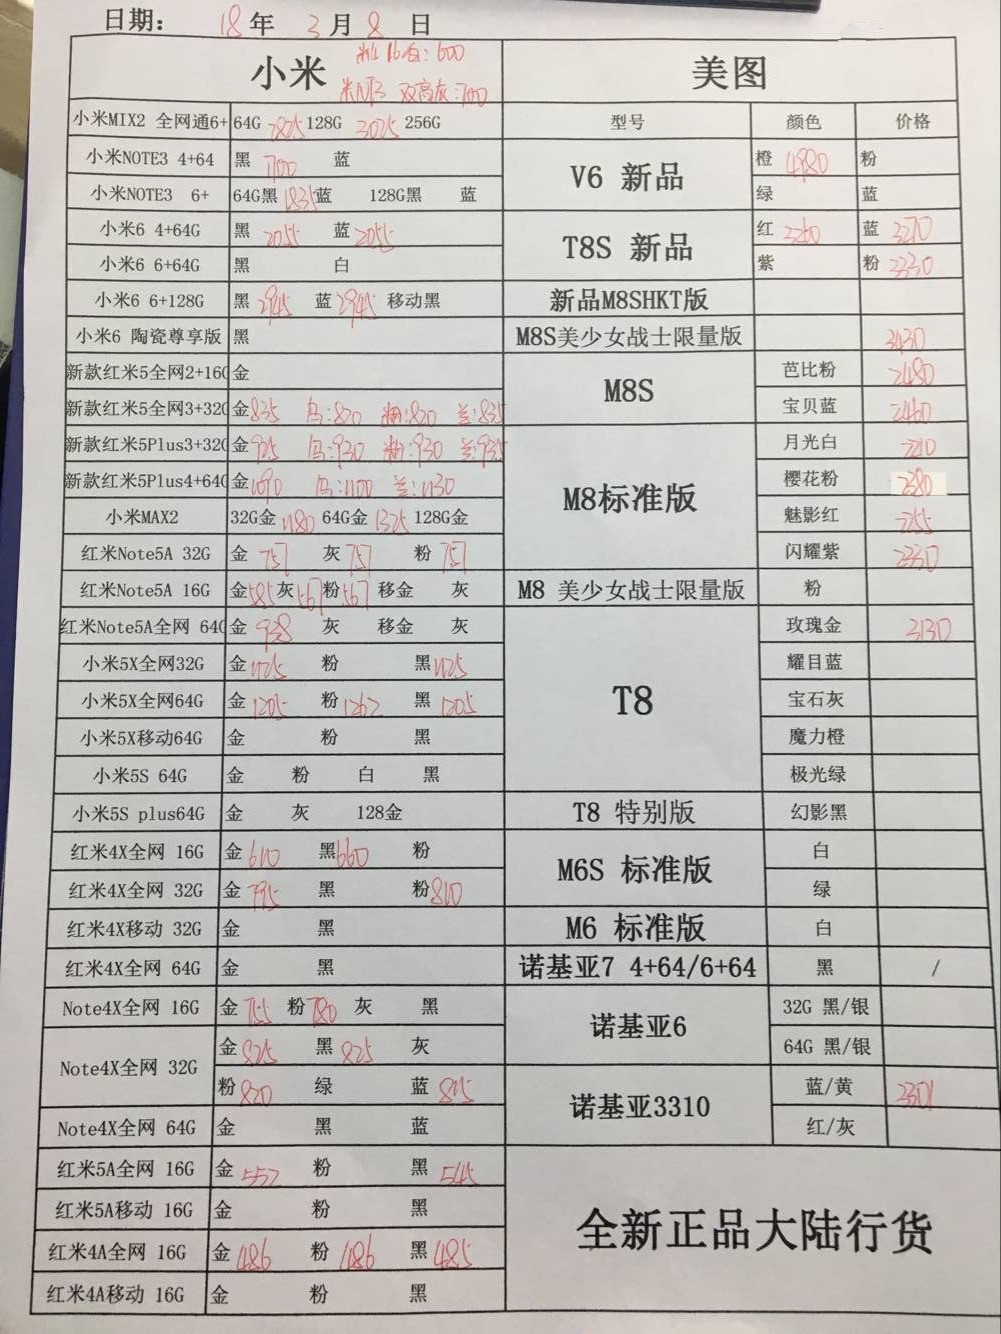 日期: 18年 3月 8 日
小米 600
米N3 双高灰:700
美图
小米MIX2 全网通6+ 64G 2825 128G 3025 256G
型号 颜色 价格
小米NOTE3 4+64 黑 1700 蓝
V6 新品 橙 4980 粉
小米NOTE3 6+ 64G黑 1835 蓝 128G黑 蓝
绿 蓝
小米6 4+64G 黑 2055 蓝 2055
T8S 新品 红 3260 蓝 3270
小米6 6+64G 黑 白
紫 粉 3330
小米6 6+128G 黑 2945 蓝 2945 移动黑
新品M8SHKT版
小米6 陶瓷尊享版 黑
M8S美少女战士限量版 3430
新款红米5全网2+16G 金
M8S 芭比粉 2480
新款红米5全网3+32G 金 835 乌:820 粉:820 兰:835
宝贝蓝 2460
新款红米5Plus3+32G 金 925 乌:930 粉:930 兰:935
M8标准版 月光白 2210
新款红米5Plus4+64G 金 1090 乌:1100 兰:1130
樱花粉 2380
小米MAX2 32G金 1180 64G金 1325 128G金
魅影红 2255
红米Note5A 32G 金 757 灰 757 粉 757
闪耀紫 2330
红米Note5A 16G 金 585 灰 567 粉 567 移金 灰
M8 美少女战士限量版 粉
红米Note5A全网 64G 金 938 灰 移金 灰
T8 玫瑰金 3130
小米5X全网32G 金 1125 粉 黑 1125
耀目蓝
小米5X全网64G 金 1205 粉 1262 黑 1205
宝石灰
小米5X移动64G 金 粉 黑
魔力橙
小米5S 64G 金 粉 白 黑
极光绿
小米5S plus64G 金 灰 128金
T8 特别版 幻影黑
红米4X全网 16G 金 610 黑 660 粉
M6S 标准版 白
红米4X全网 32G 金 795 黑 粉 810
绿
红米4X移动 32G 金 黑
M6 标准版 白
红米4X全网 64G 金 黑
诺基亚7 4+64/6+64 黑 /
Note4X全网 16G 金 755 粉 780 灰 黑
诺基亚6 32G 黑/银
Note4X全网 32G 金 825 黑 825 灰
64G 黑/银
粉 820 绿 蓝 815
诺基亚3310 蓝/黄 2301
Note4X全网 64G 金 黑 蓝
红/灰
红米5A全网 16G 金 552 粉 黑 545
红米5A移动 16G 金 粉 黑
全新正品大陆行货
红米4A全网 16G 金 486 粉 486 黑 485
红米4A移动 16G 金 粉 黑